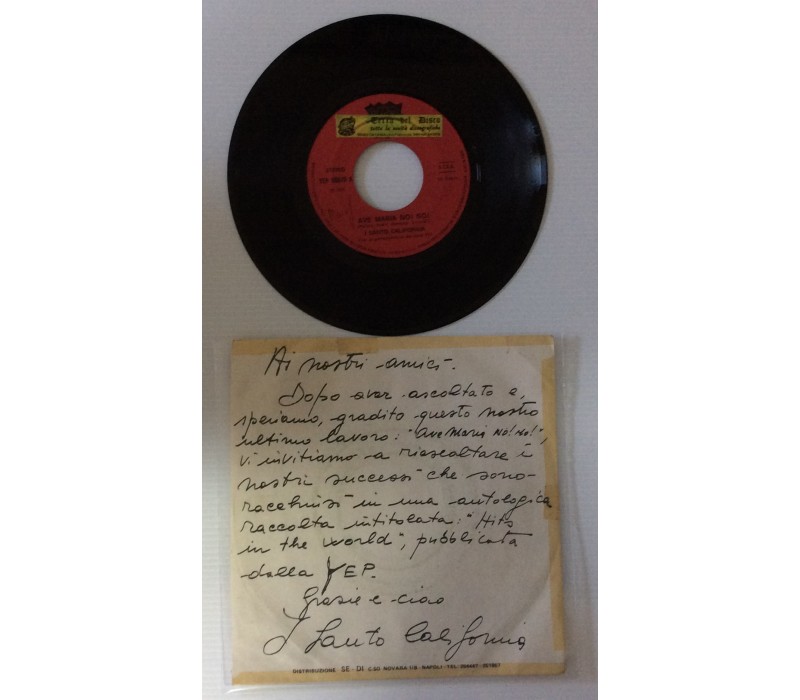 Terra del Disco
tutte le novità discografiche
STEREO
AVE MARIA NO! NO!
I SANTO CALIFORNIA
Ai nostri amici.
Dopo aver ascoltato e,
speriamo, gradito questo nostro
ultimo lavoro: "Ave Maria No! No!",
vi invitiamo a riascoltare i
nostri successi che sono
racchiusi in una antologica
raccolta intitolata: "Hits
in the world", pubblicata
dalla YEP.
Grazie e ciao
I Santo California
DISTRIBUZIONE SE-DI C.SO NOVARA